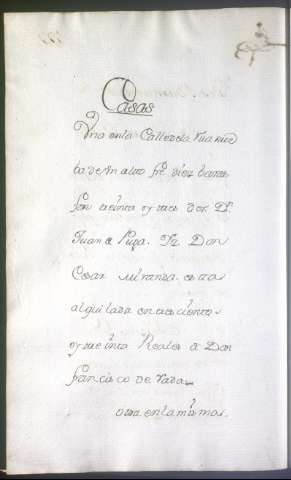 Casas
Vna en la Calle de la Rua
ta de Vn alto fr.te diez baras
fon treinta y tres der. D.n
Juan de Puga. Yz. Don
Cesar Miranda. esta
alquilada en trecientos
y treinta Reales a Don
fran.cisco de Vada
otra en la misma.